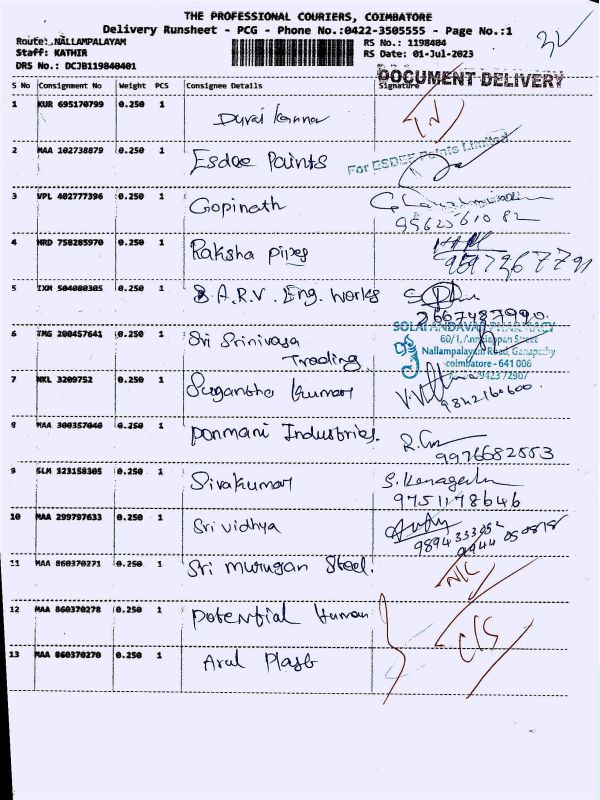 THE PROFESSIONAL COURIERS, COIMBATORE
Delivery Runsheet - PCG - Phone No.:0422-3505555 - Page No.:1
32
Route: NALLAMPALAYAM RS No.: 1198404
Staff: KATHIR RS Date: 01-Jul-2023
DRS No.: DCJB119840401
DOCUMENT DELIVERY
S No Consignment No Weight PCS Consignee Details Signature
1 KUR 695170799 0.250 1 Durai Kannan
2 MAA 102738879 0.250 1 Esdee Paints For ESDEE Paints Limited
3 VPL 402777396 0.250 1 Gopinath
4 HRD 758285970 0.250 1 Raksha pipes
5 IXM 504080305 0.250 1 S.A.R.V. Eng. Works
SOLAI ANDAVAR PHARMACY
60/1, Annaiappan Street
6 IMG 200457641 0.250 1 Sri Srinivasa Nallampalayam Road, Ganapathy
Trading coimbatore - 641 006
7 NKL 3209752 0.250 1 Sugantha Kumar 9842160600
8 MAA 300357040 0.250 1 Ponmani Industries.
9976682553
9 SLM 323158305 0.250 1 Sivakumar
9751178646
10 MAA 299797633 0.250 1 Sri vidhya
11 MAA 860370271 0.250 1 Sri murugan Steel. N/C
12 MAA 860370278 0.250 1 Potential Human
C/S
13 MAA 860370270 0.250 1 Arul Plast